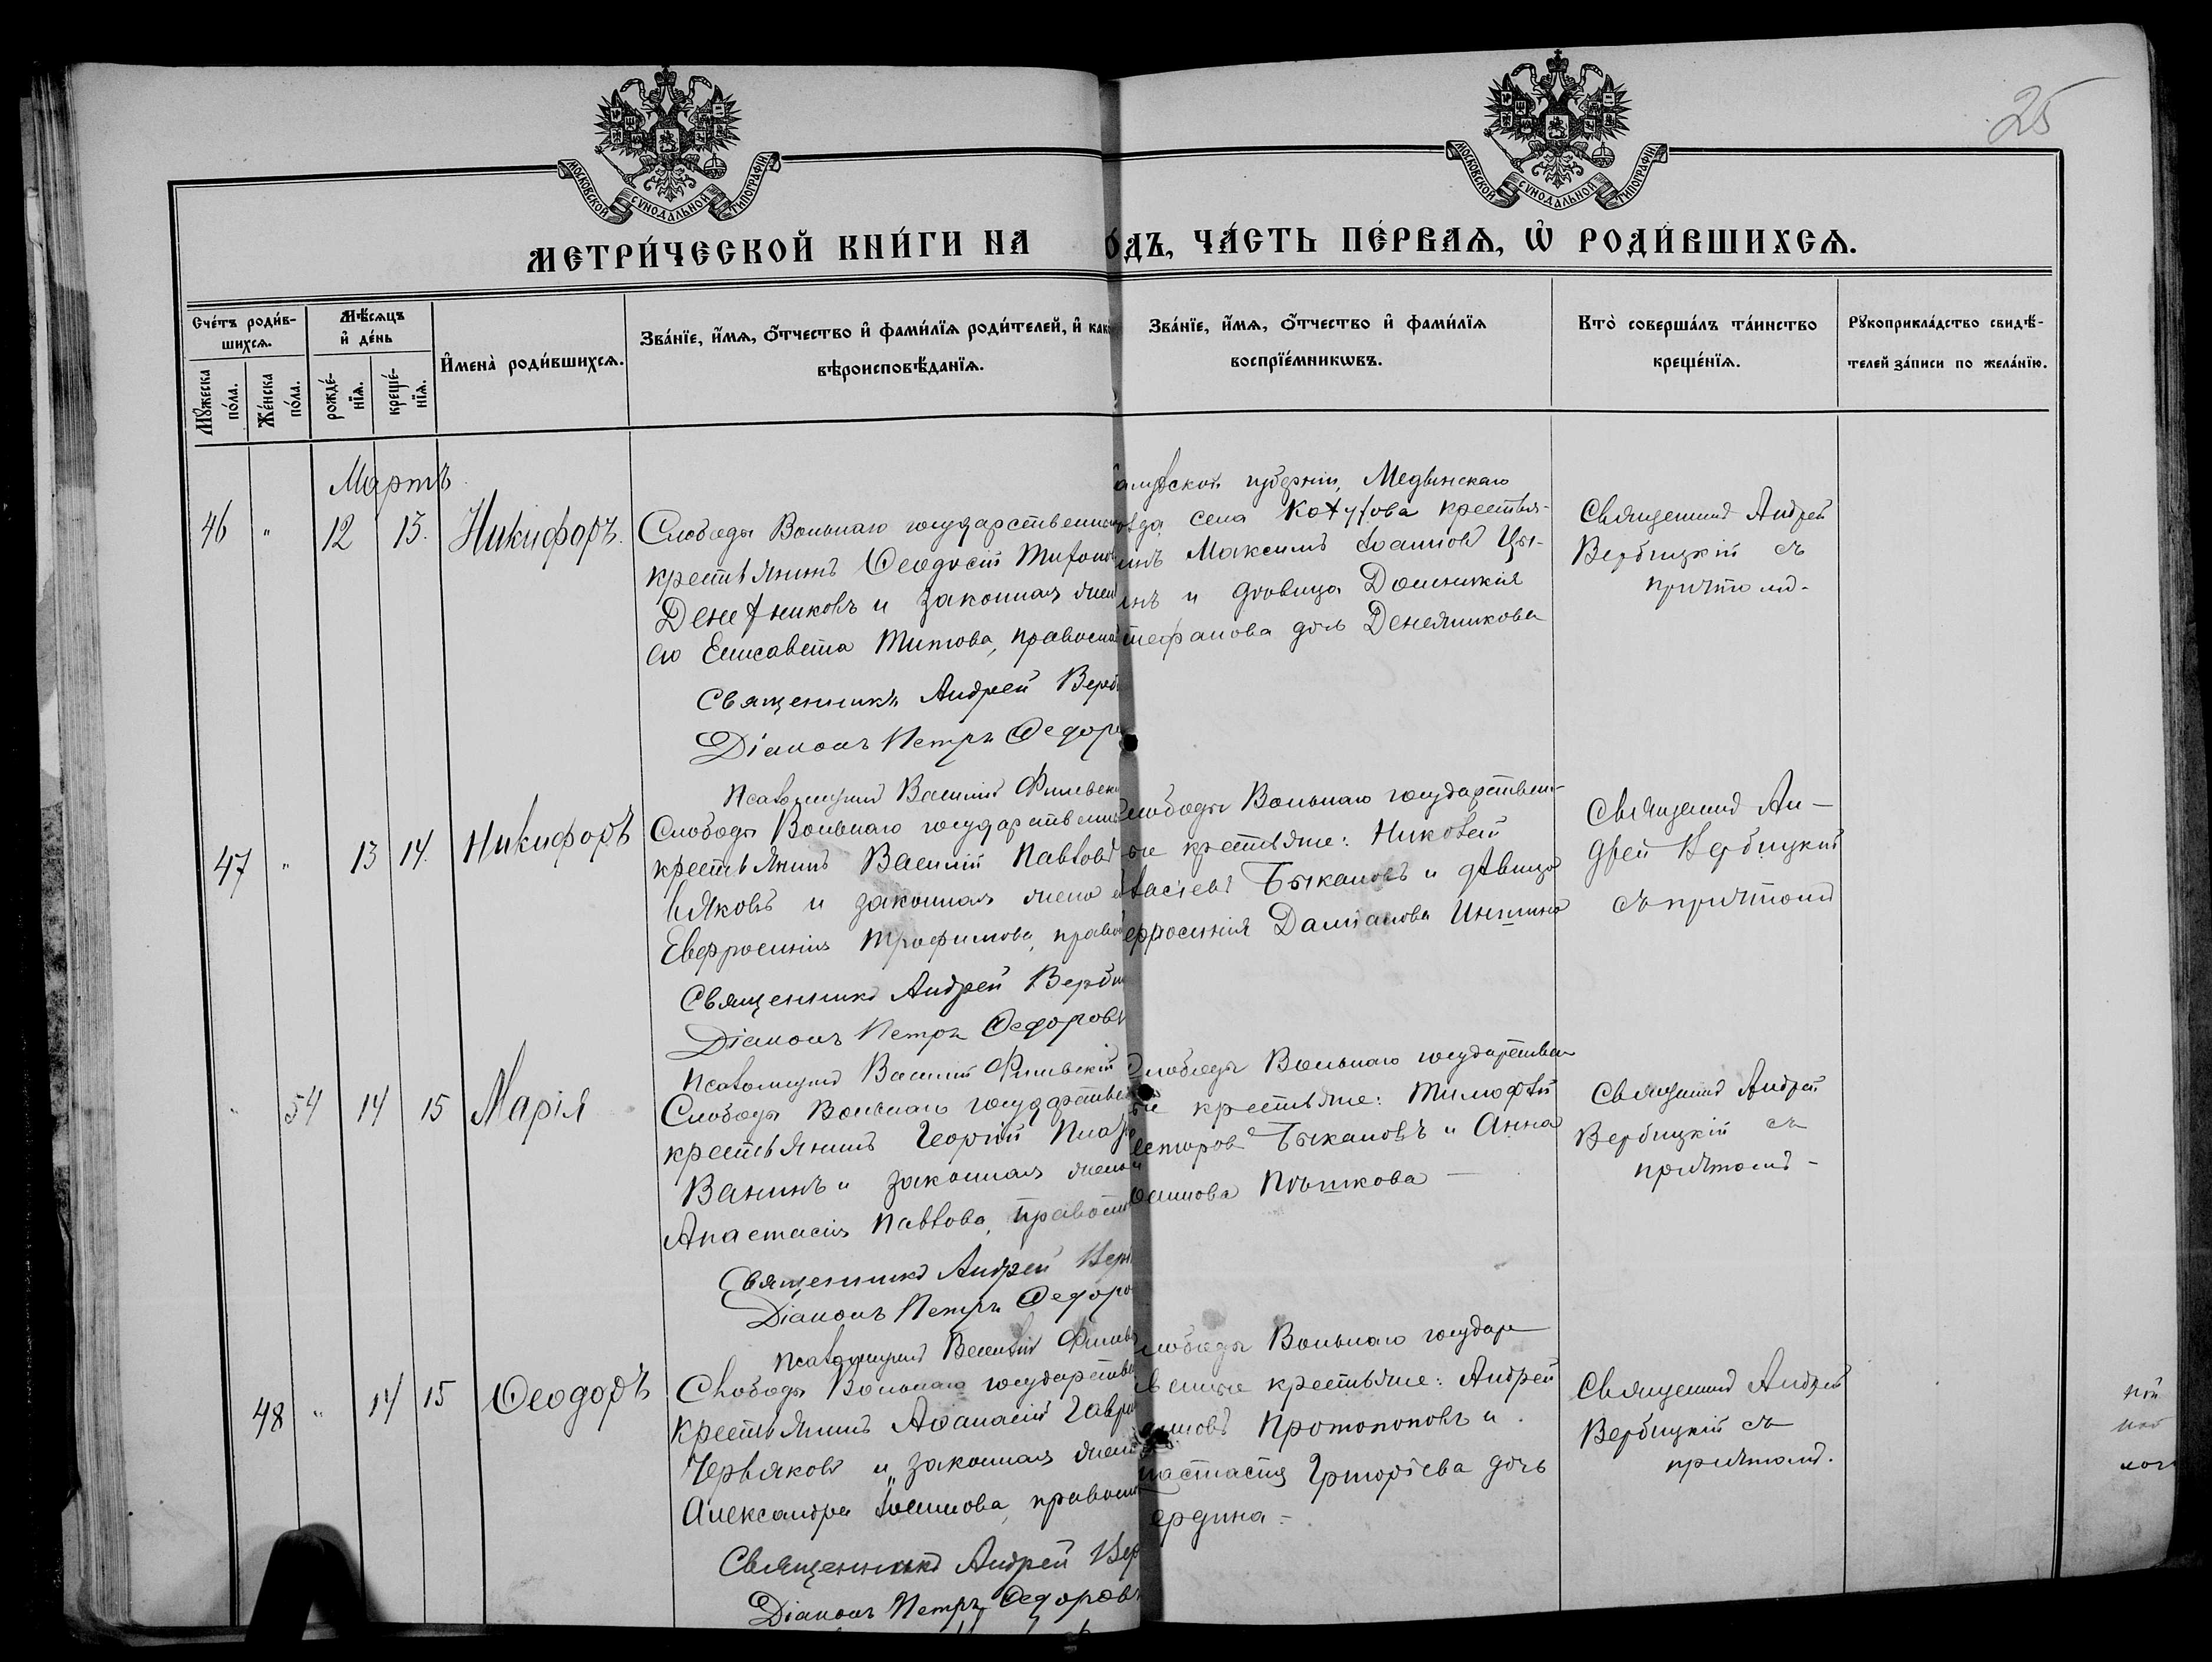 25
МОСКОВСКОЙ СУНОДАЛЬНОЙ ТИПОГРАФІИ
МОСКОВСКОЙ СУНОДАЛЬНОЙ ТИПОГРАФІИ
МЕТРИ́ЧЕСКОЙ КНИ́ГИ НА
О́ДЪ, ЧА́СТЬ ПЕ́РВАЯ, Ѡ҆ РОДИ́ВШИХСЯ.
Сче́тъ роди́в-
шихся.
Мꙋ́жеска по́ла.
Же́нска по́ла.
Мѣ́сяцъ
и҆ де́нь
рожде́-
нїя.
креще́-
нїя.
И҆мена̀ роди́вшихся.
Зва́нїе, и҆́мя, ѻ҆́тчество и҆ фами́лїя роди́телей, и҆ како
вѣроисповѣ́данїя.
Зва́нїе, и҆́мя, ѻ҆́тчество и҆ фами́лїя
воспрїе́мникѡвъ.
Кто̀ соверша́лъ та́инство
креще́нїя.
Рꙋкоприкла́дство свидѣ́-
телей за́писи по жела́нїю.
Мартъ
46 " 12 13. Никифоръ.
Слободы Вольнаго государственный
крестьянинъ Ѳеодосій
Денежниковъ и законная жена
его Елисавета Титова, правосл
Священникъ Андрей Верб
Діаконъ Петръ Ѳедоро
Псаломщикъ Василій Филевск
губерніи, Медынскаго
села крестья-
Максимъ Іоанновъ Цы-
нъ и дѣвица Домникія
тефанова дочь Денежникова
Священникъ Андрей
Вербицкій съ
причтомъ.
47 " 13 14. Никифоръ
Слободы Вольнаго государствен
крестьянинъ Василій Павловъ
вяковъ и законная жена е
Евфросинія Трофимова, право
Священникъ Андрей Верби
Діаконъ Петръ Ѳедоровъ
Псаломщикъ Василій Филевскій
лободы Вольнаго государствен-
ые крестьяне: Николай
Быкановъ и дѣвица
фросинія Даміанова Иншина
Священникъ Ан-
дрей Вербицкій
съ причтомъ
" 54 14 15 Марія
Слободы Вольнаго государствен
крестьянинъ Георгій
Ванинъ и законная жена
Анастасія Павлова, правосл
Священникъ Андрей Верб
Діаконъ Петръ Ѳедоро
Псаломщикъ Василій Филевс
Слободы Вольнаго государствен
ые крестьяне: Тимофей
есторовъ Быкановъ и Анна
оаннова Пѣшкова
Священникъ Андрей
Вербицкій съ
причтомъ
48 " 14 15 Ѳеодоръ
Слободы Вольнаго государствен
крестьянинъ Аѳанасій Гаври
Червяковъ и законная жена
Александра Іоаннова, правосл
Священникъ Андрей Вер
Діаконъ Петръ Ѳедоровъ
лободы Вольнаго государ
венные крестьяне: Андрей
Протопоповъ и
настасія Григоріева дочь
ердина
Священникъ Андрей
Вербицкій съ
причтомъ.